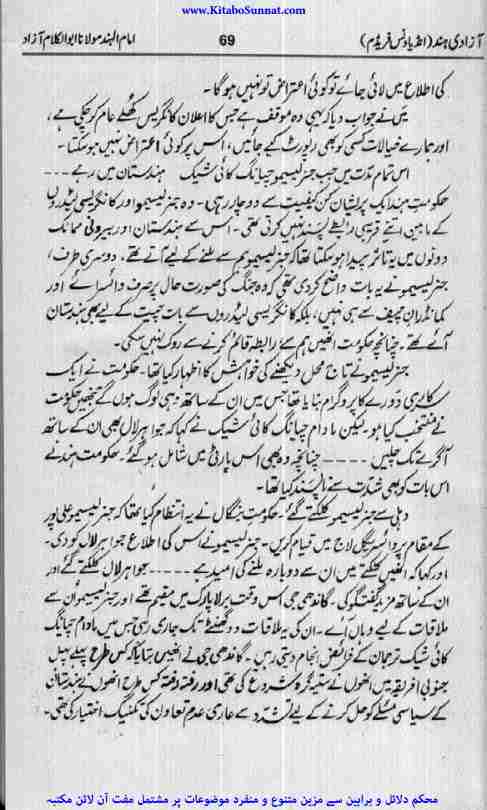 www.KitaboSunnat.com
آزادی ہند (انڈیا ونس فریڈم) 69 امام الہند مولانا ابوالکلام آزاد
کی اطلاع میں لائی جائے تو کوئی اعتراض تو نہیں ہو گا۔
میں نے جواب دیا کہ یہی وہ موقف ہے جس کا اعلان کانگریس کھلے عام کر چکی ہے،
اور ہمارے خیالات کسی کو بھی رپورٹ کیے جائیں، اس پر کوئی اعتراض نہیں ہو سکتا۔
اس تمام مدت میں جب جنرلسیمو چیانگ کائی شیک ہندستان میں رہے ----
حکومت ہند ایک پریشان کن کیفیت سے دو چار رہی۔ وہ جنرلسیمو اور کانگریسی لیڈروں
کے مابین اتنے قریبی رابطے پسند نہیں کرتی تھی۔ اس سے ہندستان اور بیرونی ممالک
دونوں میں یہ تاثر پیدا ہو سکتا تھا کہ جنرلسیمو ہم سے ملنے کے لیے آئے تھے۔ دوسری طرف،
جنرلسیمو نے یہ بات واضح کر دی تھی کہ وہ جنگ کی صورت حال پر صرف وائسرائے اور
کمانڈران چیف سے ہی نہیں، بلکہ کانگریسی لیڈروں سے بات چیت کے لیے بھی ہندستان
آئے تھے۔ چنانچہ حکومت انھیں ہم سے رابطہ قائم کرنے سے روک نہیں سکی۔
جنرلسیمو نے تاج محل دیکھنے کی خواہش کا اظہار کیا تھا۔ حکومت نے ایک
سرکاری دورے کا پروگرام بنایا تھا جس میں ان کے ساتھ وہی لوگ ہوں گے جنھیں حکومت
نے منتخب کیا ہو۔ لیکن مادام چیانگ کائی شیک نے کہا کہ جواہر لال بھی ان کے ساتھ
آگرے تک چلیں ---- چنانچہ وہ بھی اس پارٹی میں شامل ہو گئے۔ حکومت ہند نے
اس بات کو بھی شدت سے ناپسند کیا تھا۔
دہلی سے جنرلسیمو کلکتے گئے۔ حکومت بنگال نے یہ انتظام کیا تھا کہ جنرلسیمو علی پور
کے مقام پر وائسریگل لاج میں قیام کریں۔ جنرلسیمو نے اس کی اطلاع جواہر لال کو دی۔
اور کہا کہ انھیں کلکتے میں ان سے دوبارہ ملنے کی امید ہے ---- جواہر لال کلکتے گئے اور
ان کے ساتھ مزید گفتگو کی۔ گاندھی جی اس وقت برلا پارک میں مقیم تھے اور جنرلسیمو ان سے
ملاقات کے لیے وہاں آئے۔ ان کی یہ ملاقات دو گھنٹے تک جاری رہی جس میں مادام چیانگ
کائی شیک ترجمان کے فرائض انجام دیتی رہیں۔ گاندھی جی نے انھیں بتایا کہ کس طرح پہلے پہل
جنوبی افریقہ میں انھوں نے ستیہ گرہ شروع کی تھی اور رفتہ رفتہ کس طرح انھوں نے ہندستان
کے سیاسی مسئلے کو حل کرنے کے لیے تشدد سے عاری عدم تعاون کی تکنیک اختیار کی تھی۔
محکم دلائل و براہین سے مزین متنوع و منفرد موضوعات پر مشتمل مفت آن لائن مکتبہ